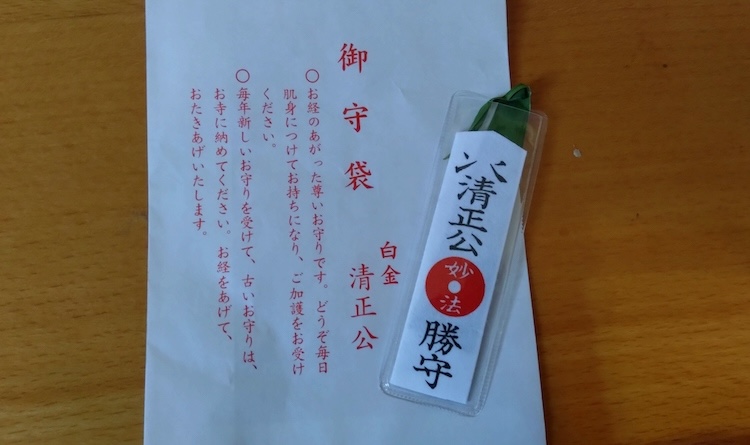 御守袋
白金 清正公
○お経のあがった尊いお守りです。どうぞ毎日
肌身につけてお持ちになり、ご加護をお受け
ください。
○毎年新しいお守りを受けて、古いお守りは、
お寺に納めてください。お経をあげて、
おたきあげいたします。
清正公
妙法
勝守